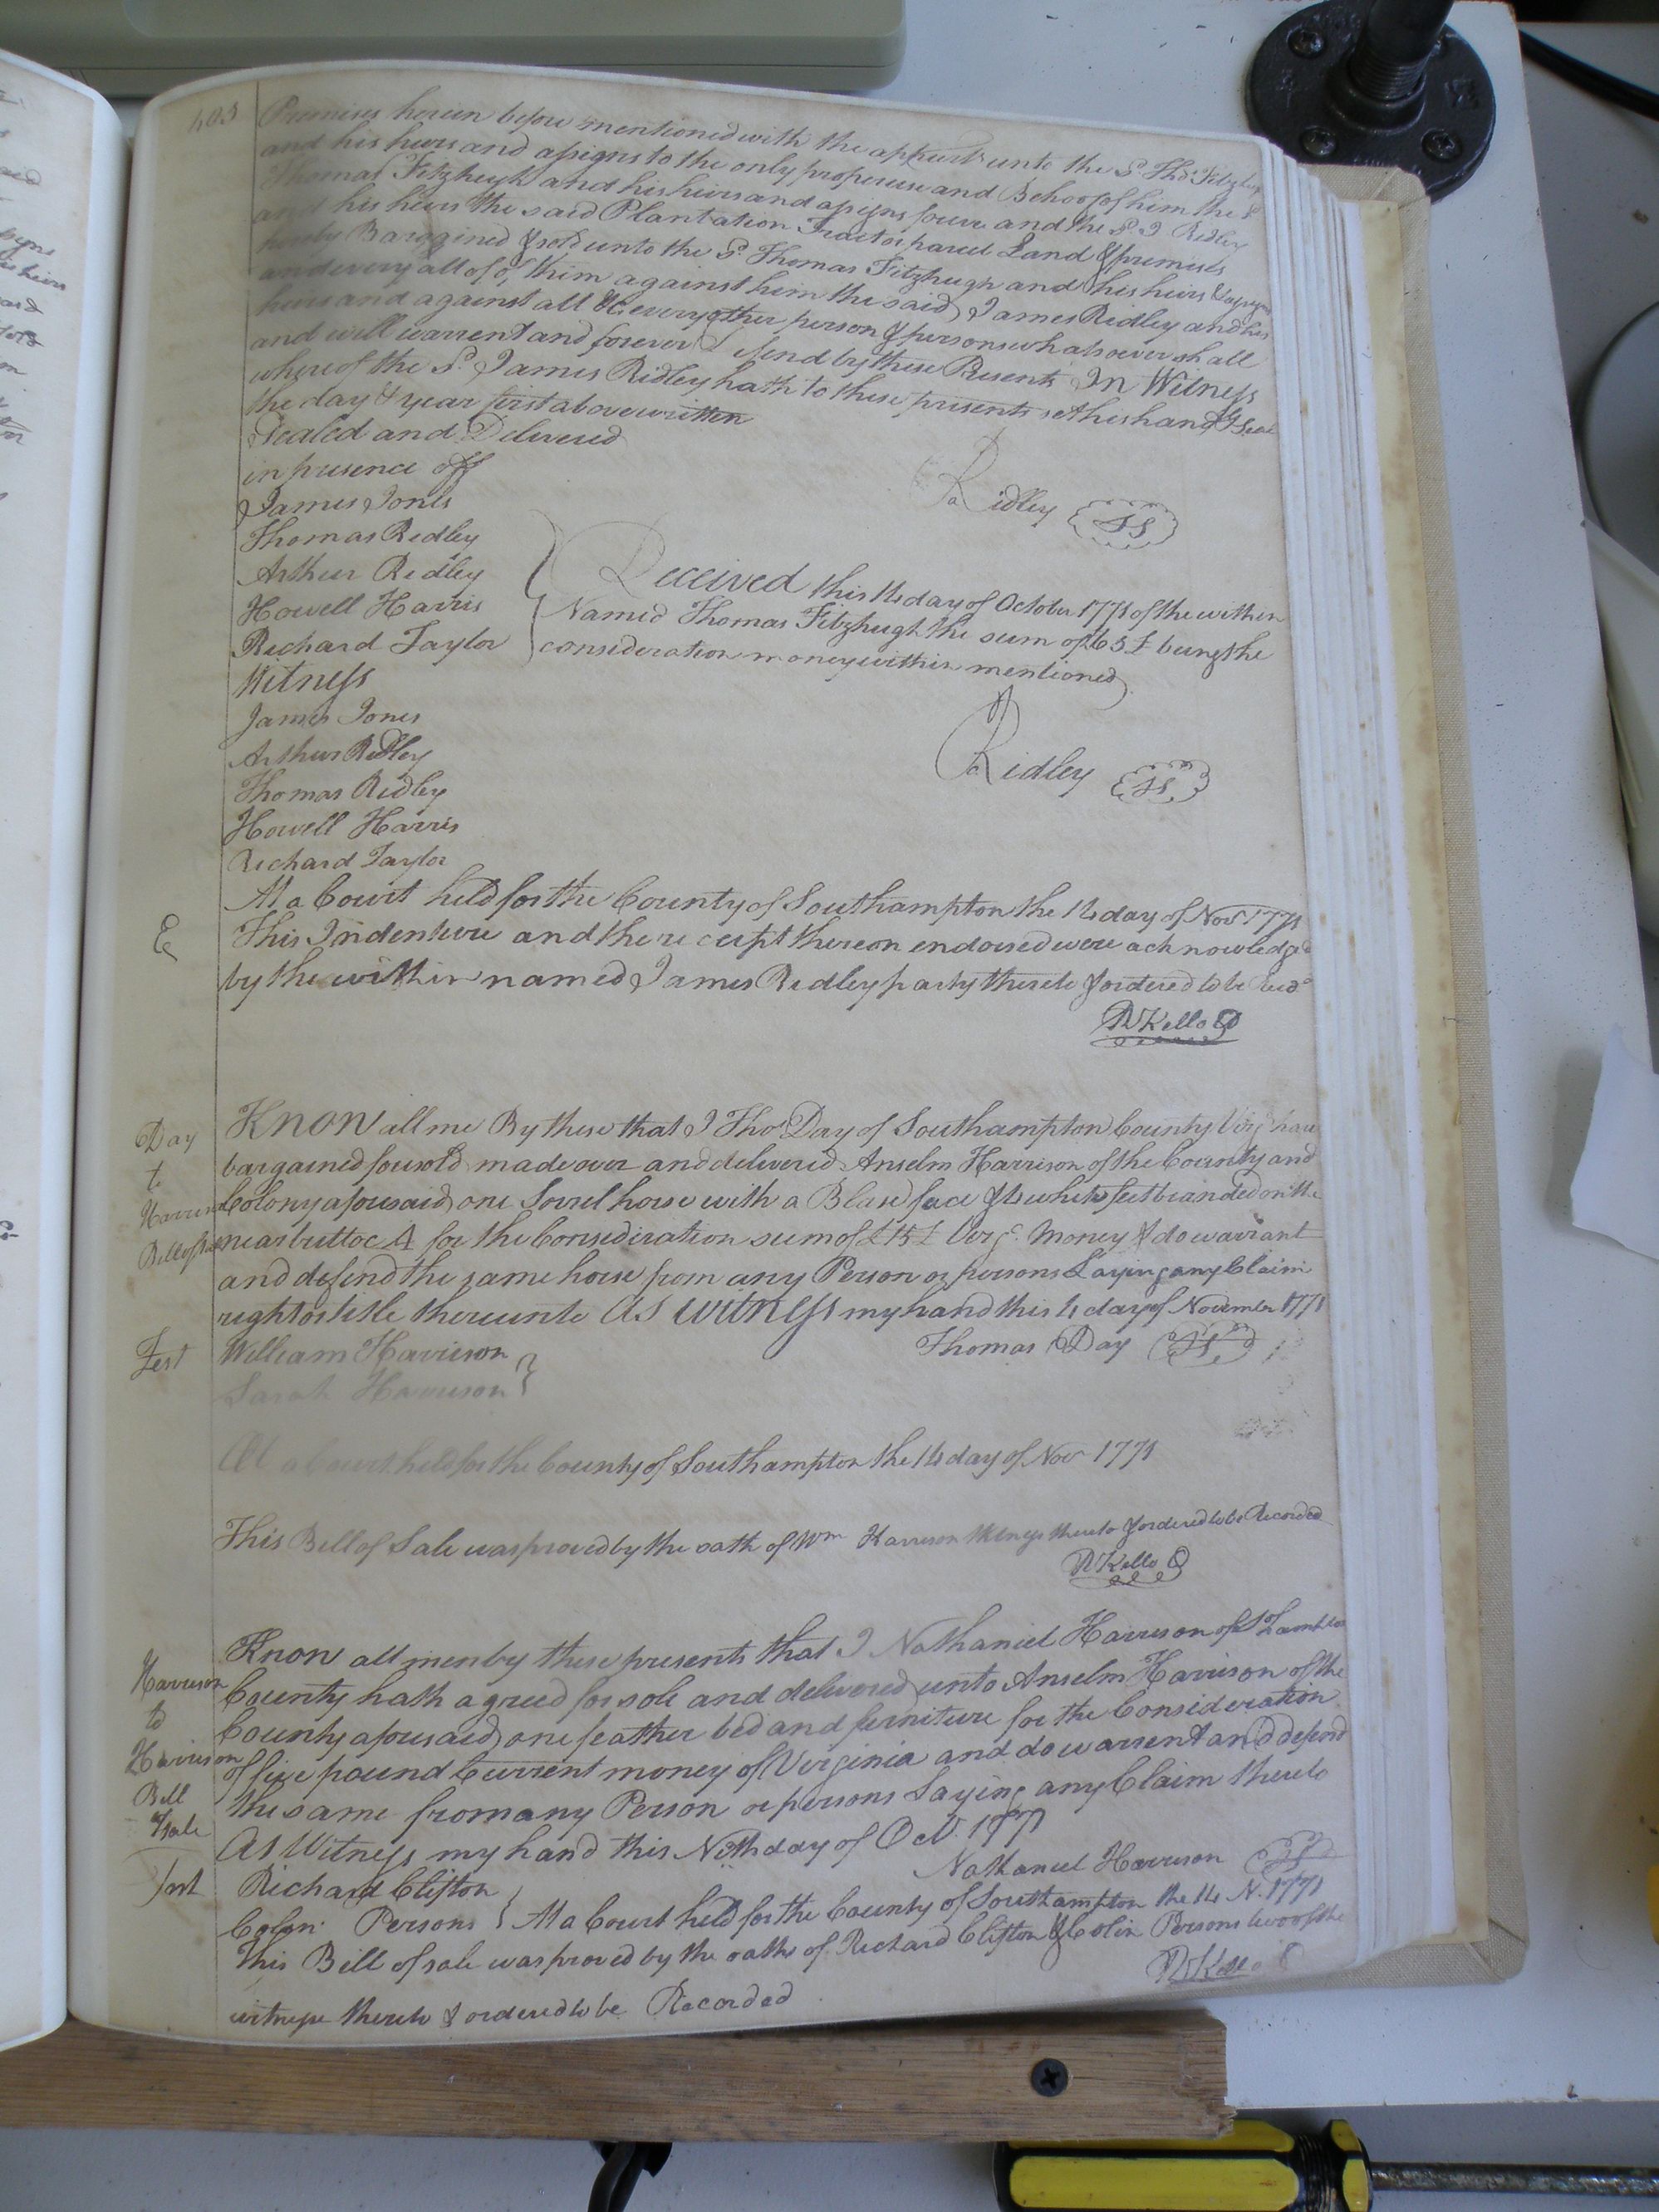 403
Premises herein before mentioned with the appurts unto the Sd. Thos. Fitzhugh
and his heirs and assigns to the only proper use and Behoof of him the Sd
Thomas Fitzhugh and his heirs and assigns forever and the Sd J Ridley
and his heirs the said Plantation Tract or parcel Land & premises
hereby Bargined & sold unto the Sd. Thomas Fitzhugh and his heirs & assigns
and every all of of them against him the said James Ridley and his
heirs and against all & every other person & persons whatsoever shall
and will warrent and forever Defend by these Presents In Witness
whereof the Sd. James Ridley hath to these presents set his hand & Seal
the day & year first above written
Sealed and Delivered
in presence off
James Jones
Ja Ridley LS
Thomas Ridley
Arthur Ridley
Howell Harris
Richard Taylor
Received this 14 day of October 1771 of the within
Named Thomas Fitzhugh the sum of 65 £ being the
consideration money within mentioned
Witness
James Jones
Arthur Ridley
Ja Ridley LS
Thomas Ridley
Howell Harris
Richard Taylor
At a Court held for the County of Southampton the 14 day of Novr 1771
E
This Indenture and the receipt thereon endorsed were acknowledged
by the within named James Ridley party thereto & ordered to be Recd.
R Kello
Day
to
Harrison
Bill of Sale
KNOW all me By these that I Thos. Day of Southampton County Virga have
bargained for sold made over and delivered Anselm Harrison of the County and
Colony aforesaid one Sorrel horse with a Blase face & 4 white feet branded on the
near buttoc A for the Consideration sum of £ 15 £ Virg. Money & do warrant
and defend the same horse from any Person or persons Laying any Claim
right or title thereunto AS WITNESS my hand this 4 day of November 1771
Test
William Harrison
Thomas Day LS
Sarah Harrison
At a Court held for the County of Southampton the 14 day of Nov 1771
This Bill of Sale was proved by the oath of Wm Harrison Witness thereto & ordered to be Recorded
R Kello
Harrison
to
Harrison
Bill
of sale
Know all men by these presents that I Nathaniel Harrison of
County hath agreed for sole and delivered unto Anselm Harrison of the
County aforesaid one feather bed and furniture for the Consideration
of five pound Current money of Virginia and do warrent and defend
the same from any Person or persons Laying any Claim thereto
As Witness my hand this day of Oct. 1771
Nathaniel Harrison LS
Test
Richard Clifton
Colin Persons
At a Court held for the County of Southampton the 14 N. 1771
This Bill of sale was proved by the oaths of Richard Clifton & Colin Persons two of the
R Kello
witnesse thereto & ordered to be Recorded